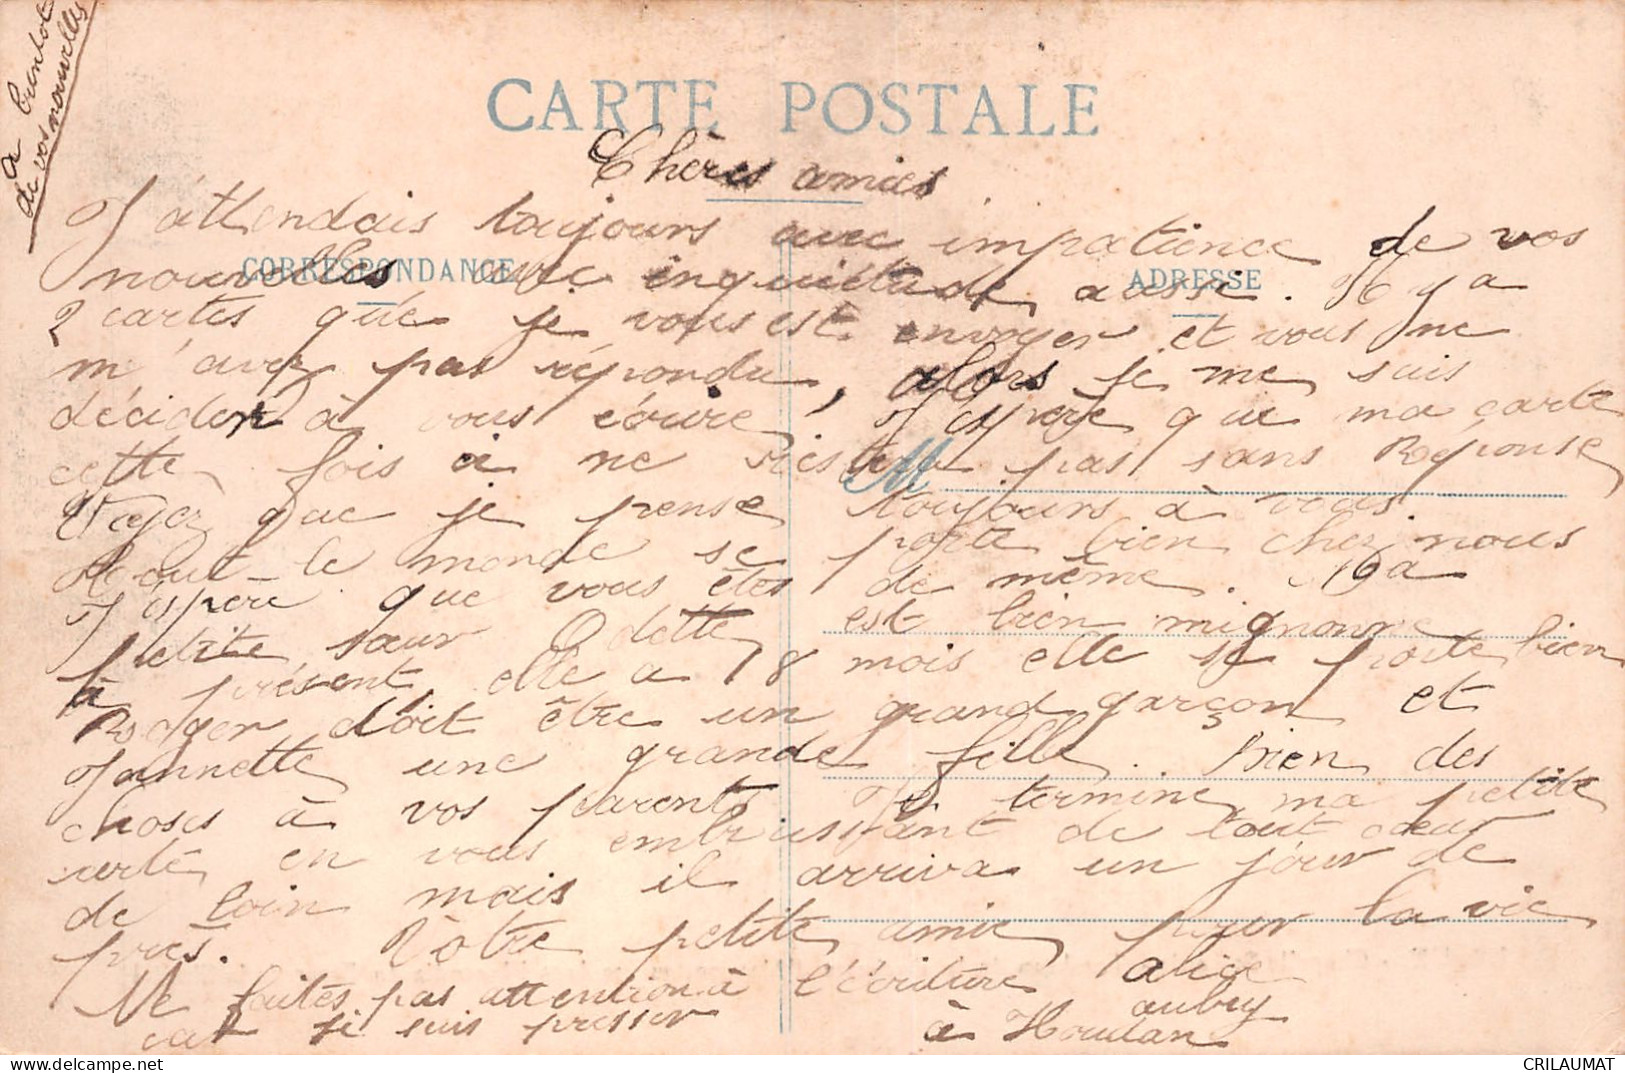 a bientot
de vos nouvelles
CARTE POSTALE
Chères amies
J'attendais toujours avec impatience de vos
CORRESPONDANCE
ADRESSE
nouvelles avec inquiétude aussi. Il y a
2 cartes que je vous est envoyer et vous ne
m'avez pas répondu, alors je me suis
décider à vous écrire J'espère que ma carte
cette fois ci ne restera pas sans Réponse
M
Voyez que je pense toujours à vous.
tout le monde se porte bien chez nous
J'espère que vous êtes de même. Ma
petite sœur Odette est bien mignonne
à présent elle a 18 mois elle se porte bien
Roger doit être un grand garçon et
Jannette une grande fille. bien des
choses à vos parents Je termine ma petite
carte en vous embrassant de tout cœur
de loin mais il arriva un jour de
près. Vôtre petite amie pour la vie
Alice
Aubry
Ne faites pas attention à l'écriture
car je suis presser
à Houdan
CRILAUMAT